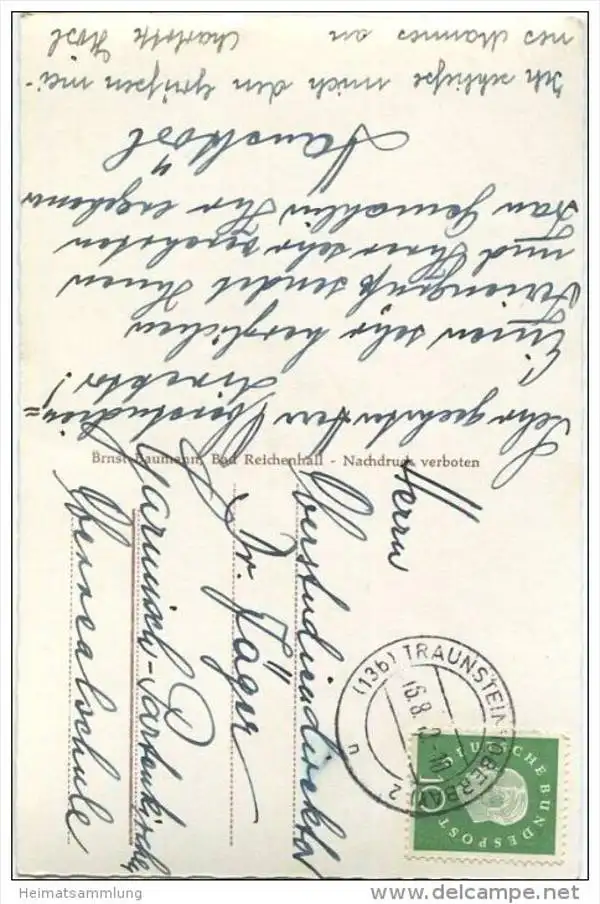 Sehr geehrter Herr Oberstudien=
direktor!
Einen sehr herzlichen
Feriengruß sendet Ihnen
und Ihrer sehr verehrten
Frau Gemahlin Ihr ergebener
Hans Kösl
Ich schließe mich den Grüßen mei-
nes Mannes an
Charlotte Kösl
Ernst Baumann, Bad Reichenhall - Nachdruck verboten
Herrn
Oberstudiendirektor
Dr. Jäger
Garmisch-Partenkirchen
Oberrealschule
(13b) TRAUNSTEIN (OBERBAY) 2
16.8.
u
DEUTSCHE BUNDESPOST
10
Heimatsammlung
www.delcampe.net